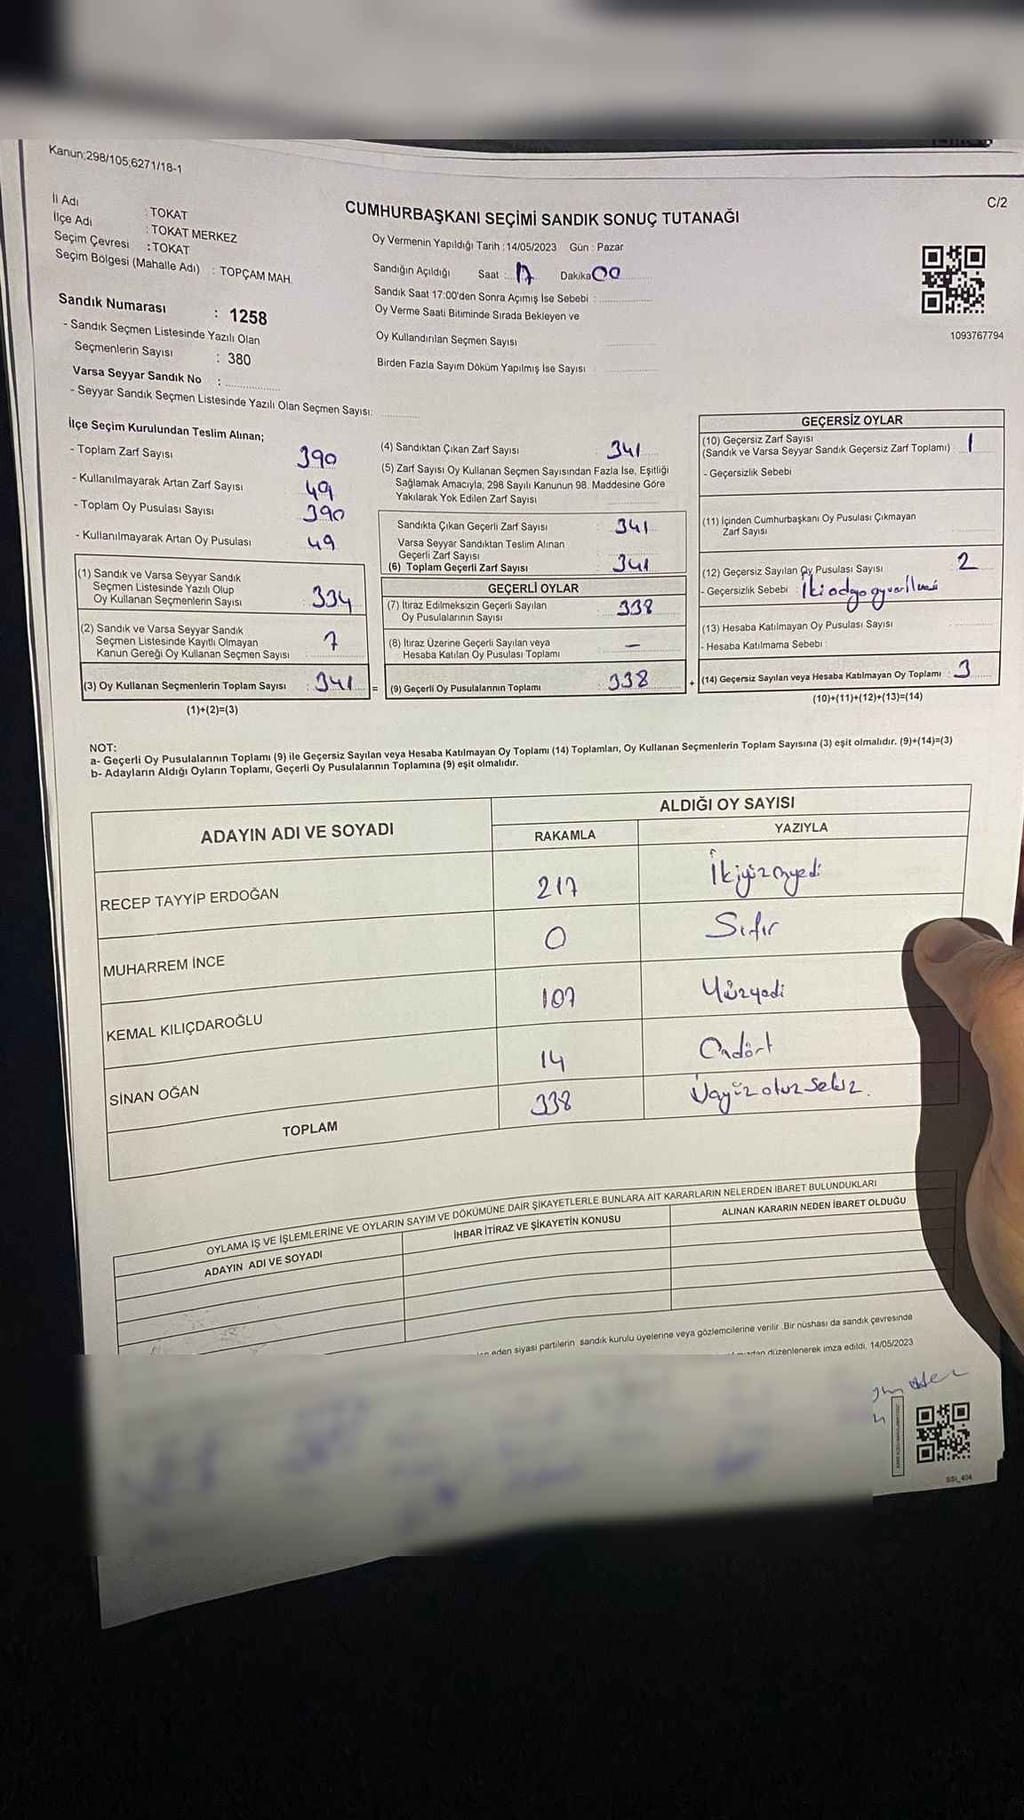 Kanun:298/105,6271/18-1
C/2
İl Adı : TOKAT
İlçe Adı : TOKAT MERKEZ
Seçim Çevresi : TOKAT
Seçim Bölgesi (Mahalle Adı) : TOPÇAM MAH.
CUMHURBAŞKANI SEÇİMİ SANDIK SONUÇ TUTANAĞI
Oy Vermenin Yapıldığı Tarih : 14/05/2023 Gün : Pazar
Sandığın Açıldığı Saat : 17 Dakika 00
Sandık Saat 17:00'den Sonra Açımış İse Sebebi :
Oy Verme Saati Bitiminde Sırada Bekleyen ve
Oy Kullandırılan Seçmen Sayısı
Birden Fazla Sayım Döküm Yapılmış İse Sayısı
1093767794
Sandık Numarası : 1258
- Sandık Seçmen Listesinde Yazılı Olan
Seçmenlerin Sayısı : 380
Varsa Seyyar Sandık No :
- Seyyar Sandık Seçmen Listesinde Yazılı Olan Seçmen Sayısı:
İlçe Seçim Kurulundan Teslim Alınan;
- Toplam Zarf Sayısı 390
- Kullanılmayarak Artan Zarf Sayısı 49
- Toplam Oy Pusulası Sayısı 390
- Kullanılmayarak Artan Oy Pusulası 49
(1) Sandık ve Varsa Seyyar Sandık
Seçmen Listesinde Yazılı Olup
Oy Kullanan Seçmenlerin Sayısı 334
(2) Sandık ve Varsa Seyyar Sandık
Seçmen Listesinde Kayıtlı Olmayan
Kanun Gereği Oy Kullanan Seçmen Sayısı 7
(3) Oy Kullanan Seçmenlerin Toplam Sayısı : 341 =
(1)+(2)=(3)
(4) Sandıktan Çıkan Zarf Sayısı 341
(5) Zarf Sayısı Oy Kullanan Seçmen Sayısından Fazla İse, Eşitliği
Sağlamak Amacıyla, 298 Sayılı Kanunun 98. Maddesine Göre
Yakılarak Yok Edilen Zarf Sayısı
Sandıkta Çıkan Geçerli Zarf Sayısı 341
Varsa Seyyar Sandıktan Teslim Alınan
Geçerli Zarf Sayısı
(6) Toplam Geçerli Zarf Sayısı 341
GEÇERLİ OYLAR
(7) İtiraz Edilmeksizin Geçerli Sayılan
Oy Pusulalarının Sayısı 338
(8) İtiraz Üzerine Geçerli Sayılan veya
Hesaba Katılan Oy Pusulası Toplamı —
(9) Geçerli Oy Pusulalarının Toplamı 338 +
GEÇERSİZ OYLAR
(10) Geçersiz Zarf Sayısı
(Sandık ve Varsa Seyyar Sandık Geçersiz Zarf Toplamı) : 1
- Geçersizlik Sebebi
(11) İçinden Cumhurbaşkanı Oy Pusulası Çıkmayan
Zarf Sayısı
(12) Geçersiz Sayılan Oy Pusulası Sayısı 2
- Geçersizlik Sebebi :
(13) Hesaba Katılmayan Oy Pusulası Sayısı
- Hesaba Katılmama Sebebi
(14) Geçersiz Sayılan veya Hesaba Katılmayan Oy Toplamı : 3
(10)+(11)+(12)+(13)=(14)
NOT:
a- Geçerli Oy Pusulalarının Toplamı (9) ile Geçersiz Sayılan veya Hesaba Katılmayan Oy Toplamı (14) Toplamları, Oy Kullanan Seçmenlerin Toplam Sayısına (3) eşit olmalıdır. (9)+(14)=(3)
b- Adayların Aldığı Oyların Toplamı, Geçerli Oy Pusulalarının Toplamına (9) eşit olmalıdır.
ADAYIN ADI VE SOYADI
ALDIĞI OY SAYISI
RAKAMLA YAZIYLA
RECEP TAYYİP ERDOĞAN 217 İkiyüzonyedi
MUHARREM İNCE 0 Sıfır
KEMAL KILIÇDAROĞLU 107 Yüzyedi
SİNAN OĞAN 14 Ondört
TOPLAM 338 Üçyüzotuzsekiz.
OYLAMA İŞ VE İŞLEMLERİNE VE OYLARIN SAYIM VE DÖKÜMÜNE DAİR ŞİKAYETLERLE BUNLARA AİT KARARLARIN NELERDEN İBARET BULUNDUKLARI
ADAYIN ADI VE SOYADI
İHBAR İTİRAZ VE ŞİKAYETİN KONUSU
ALINAN KARARIN NEDEN İBARET OLDUĞU
eden siyasi partilerin sandık kurulu üyelerine veya gözlemcilerine verilir. Bir nüshası da sandık çevresinde
düzenlenerek imza edildi. 14/05/2023